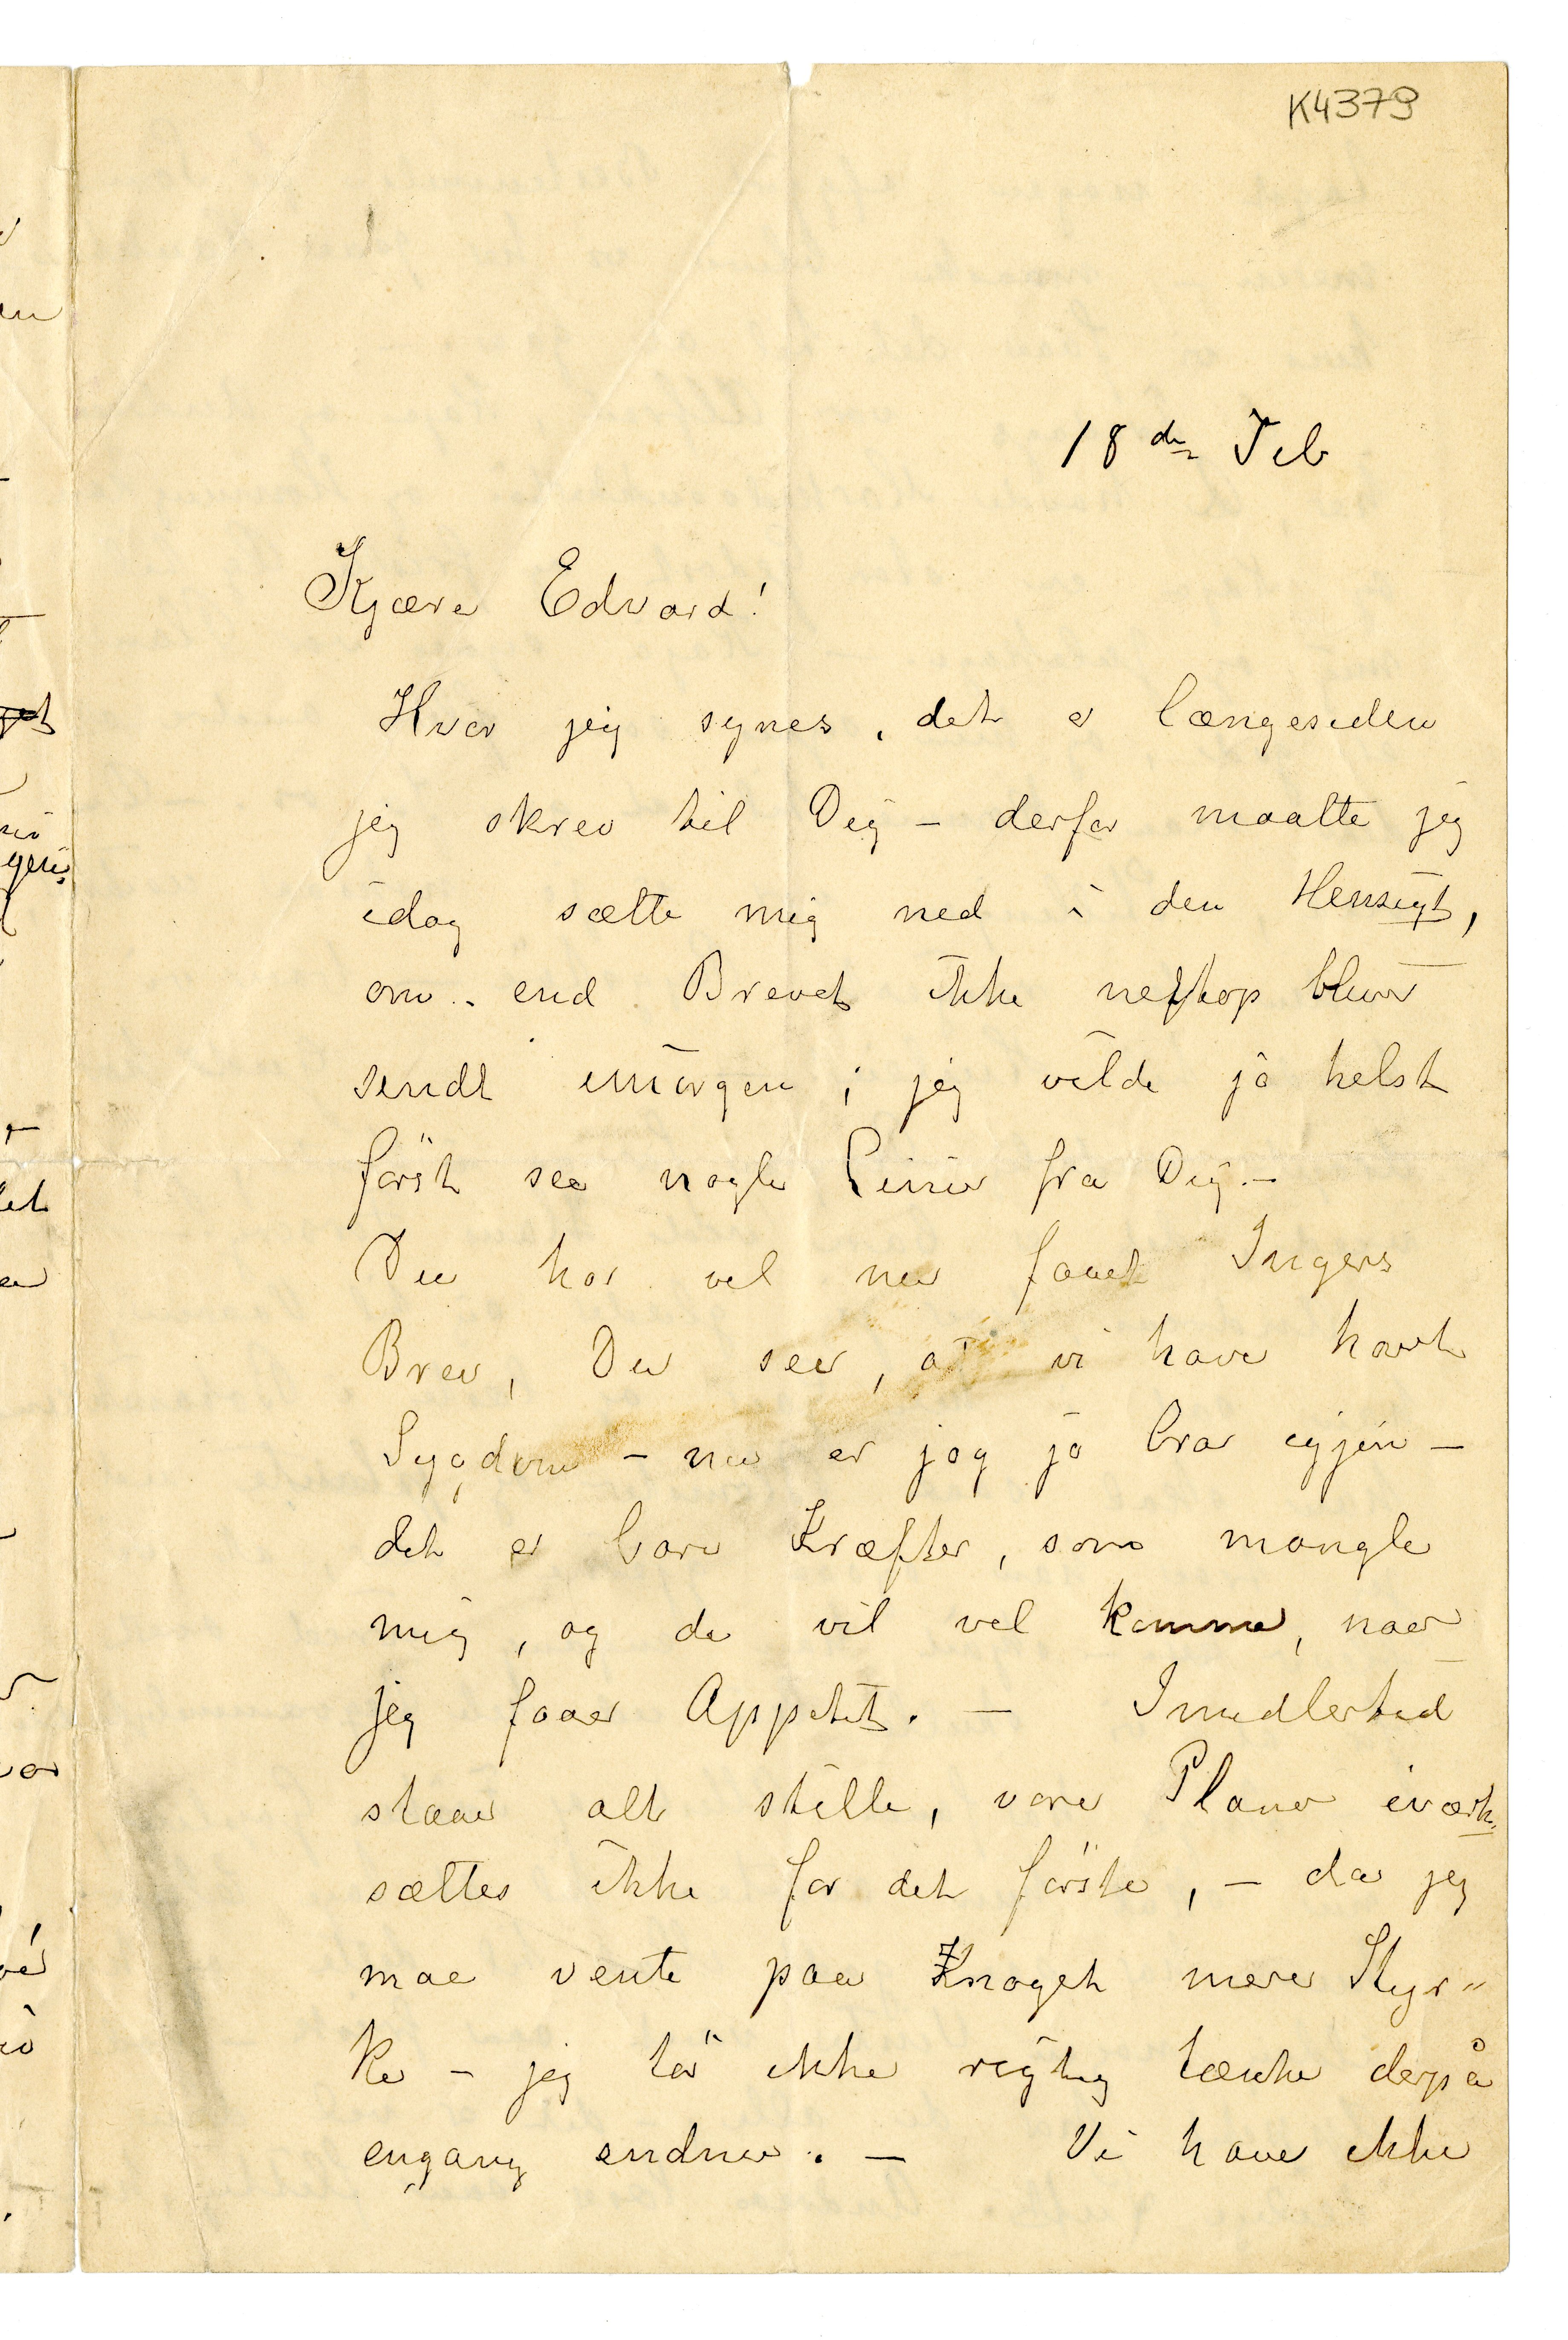 K4379
18de Feb
Kjære Edvard!
Hvor jeg synes, det er længesiden
jeg skrev til Dig – derfor maatte jeg
idag sætte mig ned i den Hensigt,
om end Brevet ikke netop bliver
sendt imorgen; jeg vilde jo helst
først see nogle Linier fra Dig. –
Du har vel nu faaet Ingers
Brev, Du seer, at vi have havt
Sygdom – nu er jeg jo bra igjen –
det er bare Kræfter, som mangle
mig, og de vil vel komme, naar
jeg faaer Appetit. – Imidlertid
staaer alt stille, vore Planer iværk-
sættes ikke for det første, – da jeg
maa vente paa noget mere Styr-
ke – jeg tør ikke rigtig tænke derpå
engang endnu. – Vi have ikke